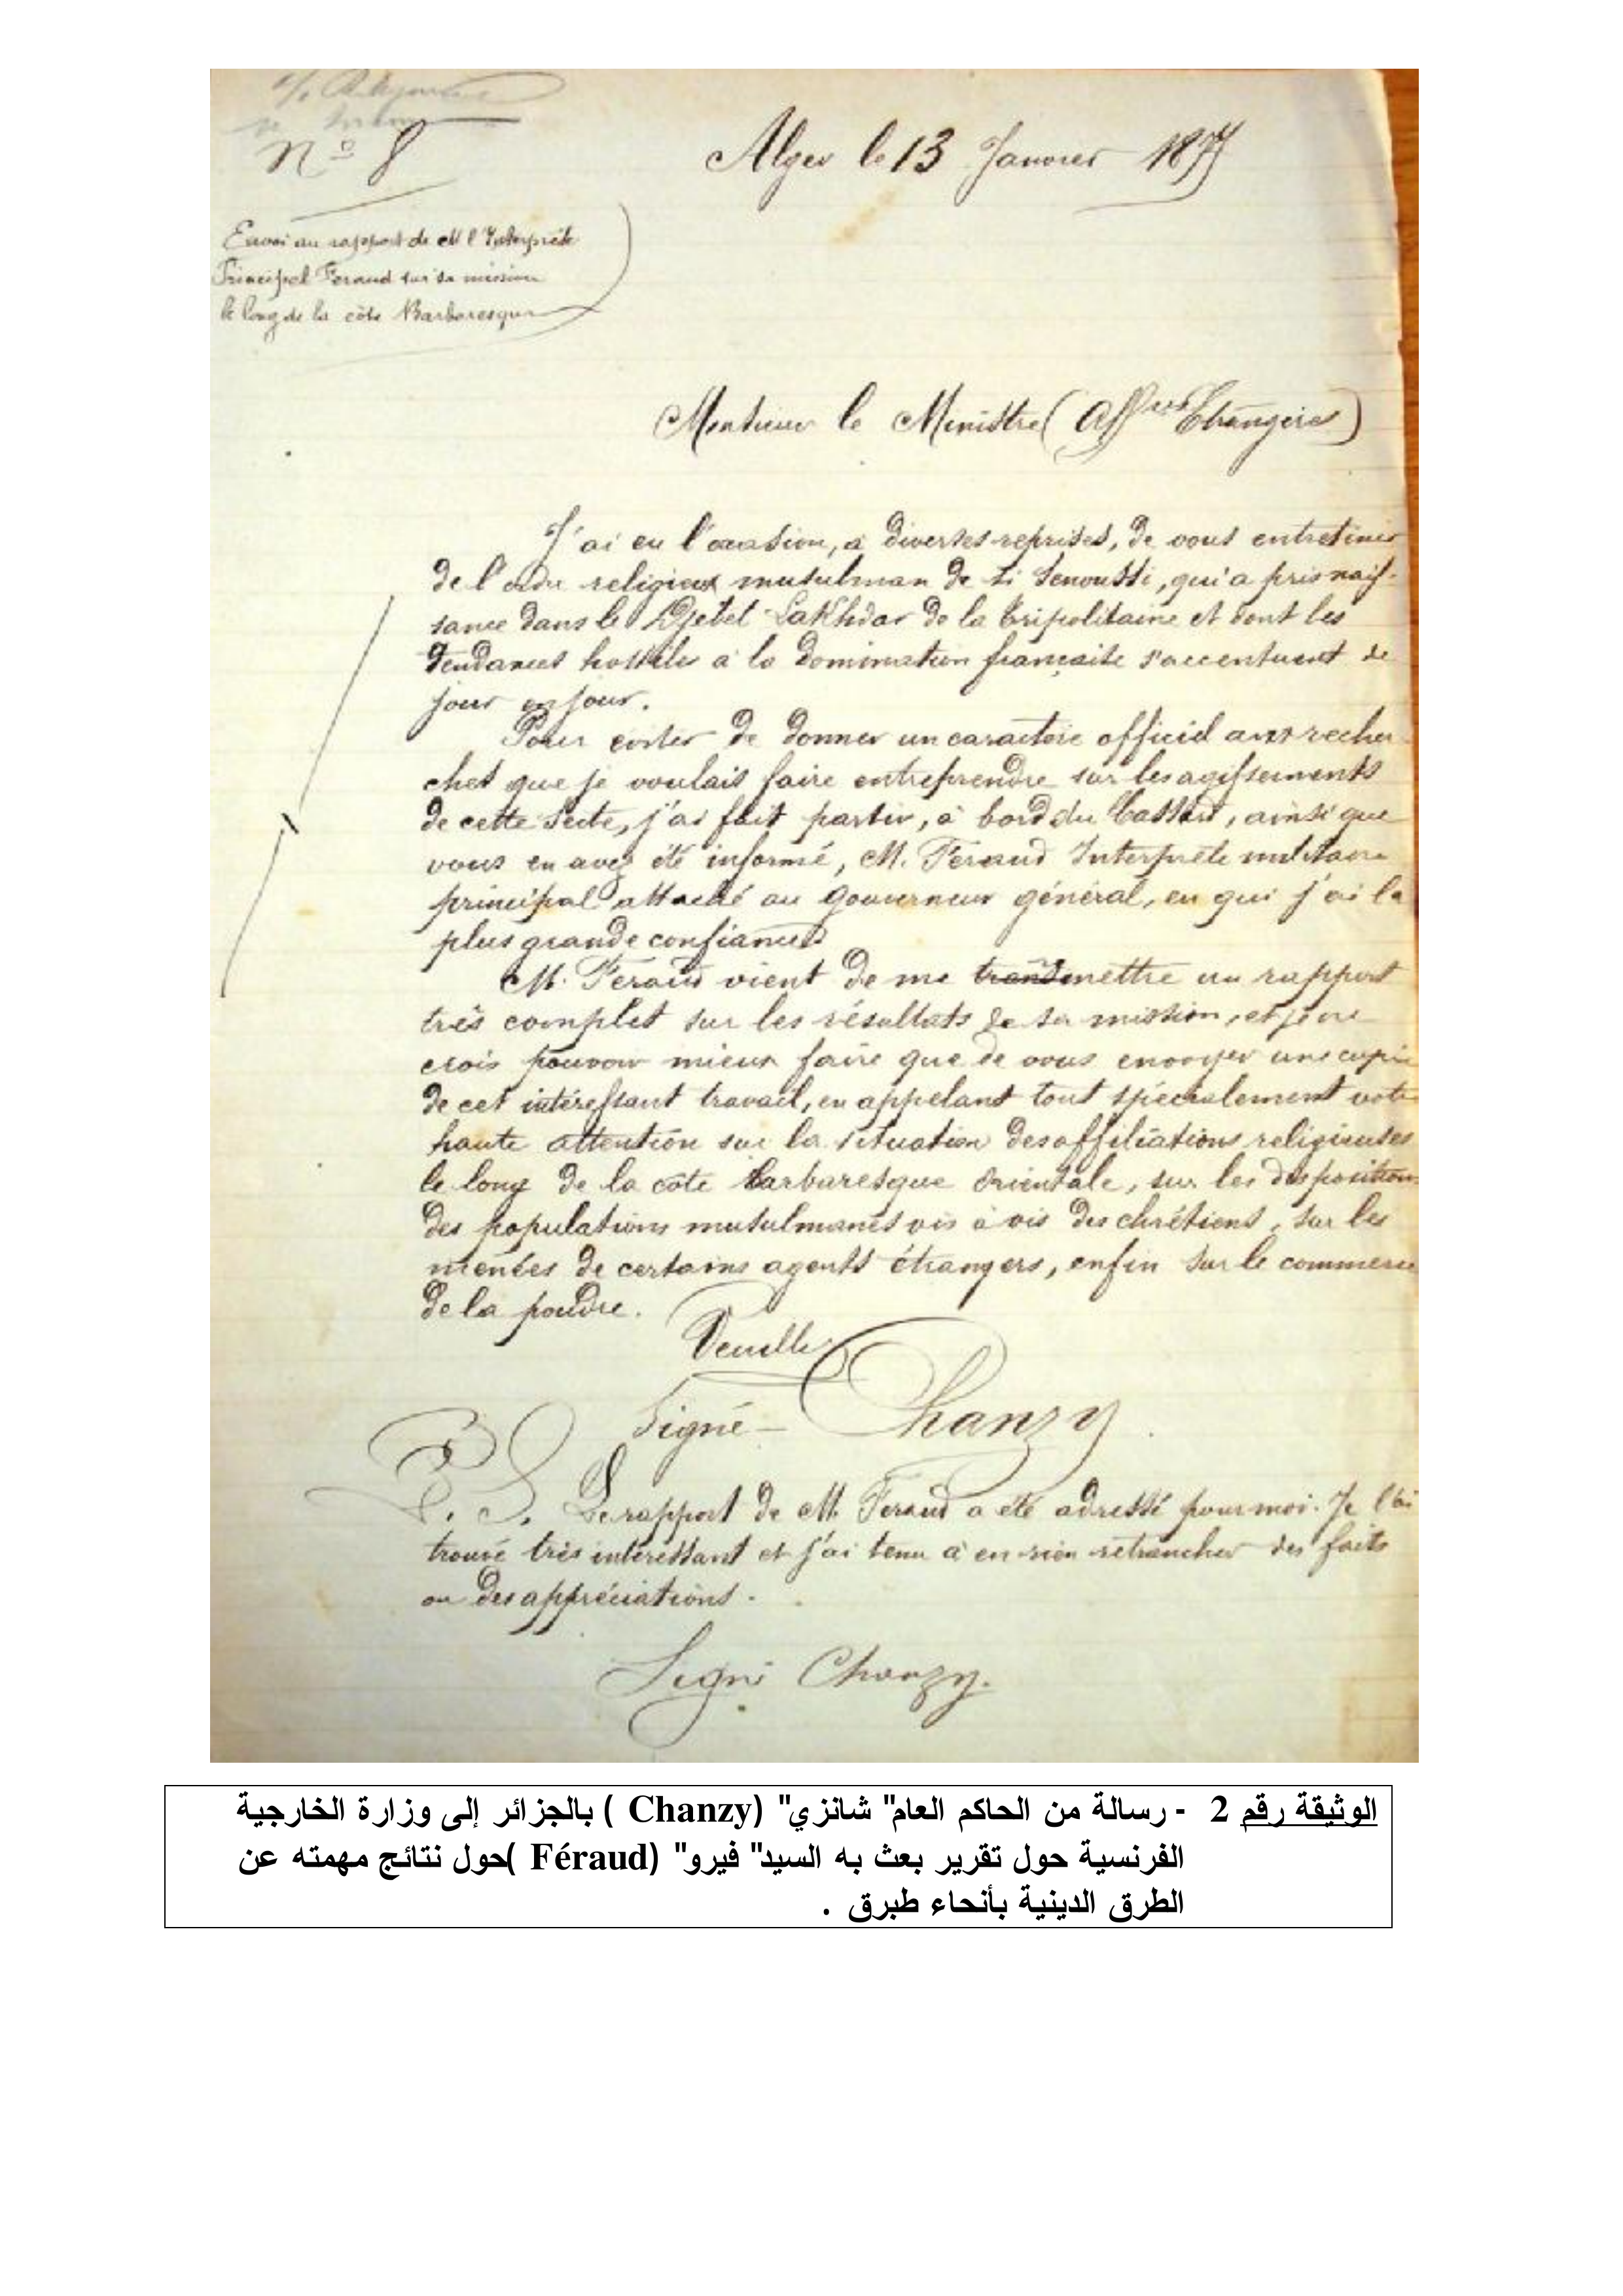 N° 8
Alger le 13 Janvier 1877
Envoi au rapport de M l'Interprète
Principal Feraud sur sa mission
le long de la côte Barbaresque
Monsieur le Ministre (Aff res Etrangères)
J'ai eu l'occasion, à diverses reprises, de vous entretenir
de l'ordre religieux musulman de Si Senoussi, qui a pris nais-
sance dans le Djebel Lakhdar de la Tripolitaine et dont les
tendances hostiles à la domination française s'accentuent de
jour en jour.
Pour eviter de donner un caractère officiel aux recher
ches que je voulais faire entreprendre sur les agissements
de cette Secte, j'ai fait partir, à bord du Cassard, ainsi que
vous en avez été informé, M. Feraud Interprète militaire
principal attaché au Gouverneur général, en qui j'ai la
plus grande confiance.
M. Feraud vient de me transmettre un rapport
très complet sur les résultats de sa mission, et je ne
crois pouvoir mieux faire que de vous envoyer une copie
de cet intéressant travail, en appelant tout spécialement votre
haute attention sur la situation des affiliations religieuses
le long de la côte barbaresque orientale, sur les dispositions
des populations musulmanes vis à vis des chrétiens, sur les
menées de certains agents étrangers, enfin sur le commerce
de la poudre.
Veuillez
Signé - Chanzy.
P. S. Le rapport de M. Feraud a été adressé pour moi. Je l'ai
trouvé très intéressant et j'ai tenu à en rien retrancher des faits
ou des appréciations.
Signé Chanzy.
الوثيقة رقم 2 - رسالة من الحاكم العام" شانزي" (Chanzy ) بالجزائر إلى وزارة الخارجية
الفرنسية حول تقرير بعث به السيد" فيرو" (Féraud )حول نتائج مهمته عن
الطرق الدينية بأنحاء طبرق .